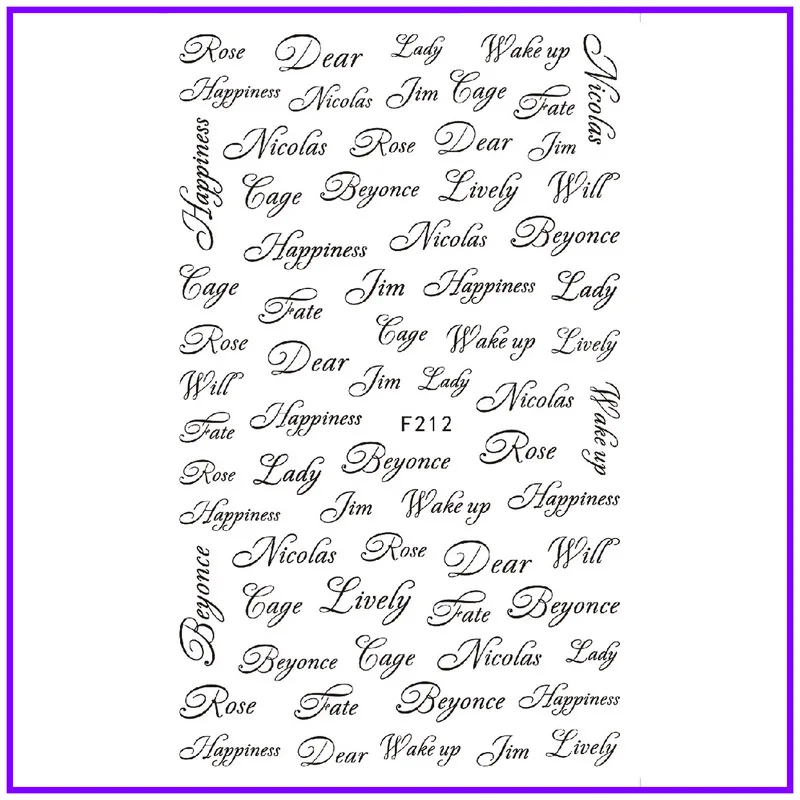 Rose Dear Lady Wake up
Nicolas
Happiness Nicolas Jim Cage Fate
Happiness
Nicolas Rose Dear Jim
Cage Beyonce Lively Will
Happiness Nicolas Beyonce
Cage Fate Jim Happiness Lady
Rose Dear Cage Wake up Lively
Will Jim Lady Nicolas
Wake up
Fate Happiness F212 Rose
Rose Lady Beyonce
Happiness Jim Wake up Happiness
Beyonce
Nicolas Rose Dear Will
Cage Lively Fate Beyonce
Beyonce Cage Nicolas Lady
Rose Fate Beyonce Happiness
Happiness Dear Wake up Jim Lively